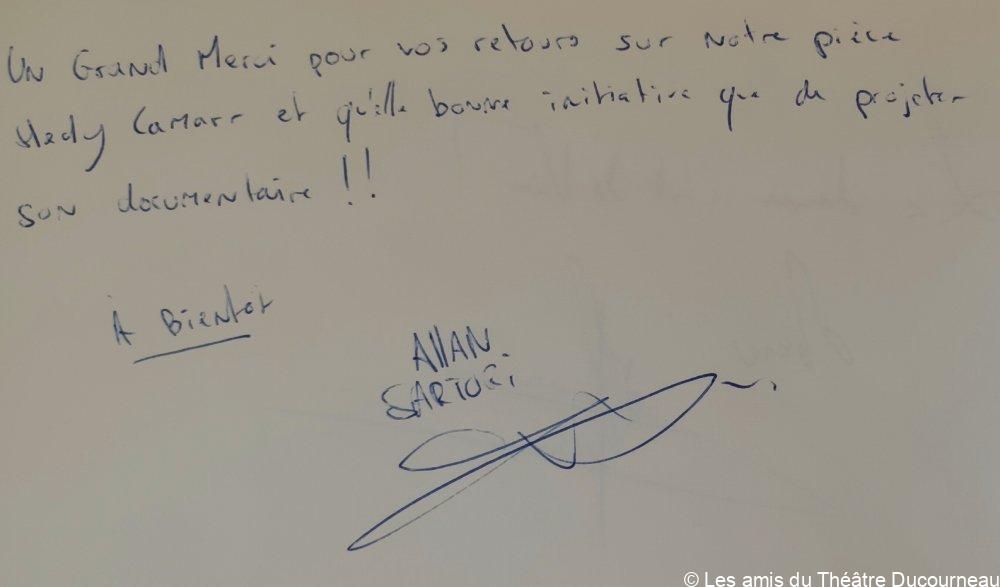 Un Grand Merci pour vos retours sur notre pièce
Hedy Lamarr et qu'elle bonne initiative que de projeter
son documentaire !!
A Bientot
Allan
SARTORi
© Les amis du Théâtre Ducourneau